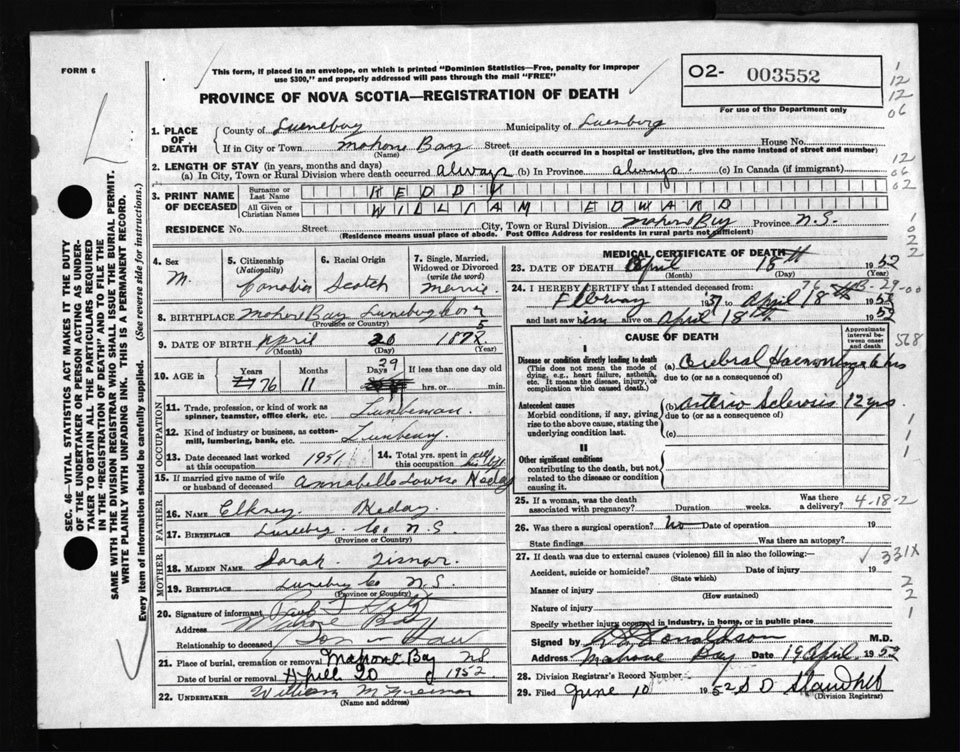 FORM 6
This form, if placed in an envelope, on which is printed "Dominion Statistics—Free, penalty for improper
use $300," and properly addressed will pass through the mail "FREE"
O2- 003552
For use of the Department only
PROVINCE OF NOVA SCOTIA—REGISTRATION OF DEATH
1. PLACE OF DEATH County of Lunenburg Municipality of Lunenburg
If in City or Town Mahone Bay (Name) Street House No.
(If death occurred in a hospital or institution, give the name instead of street and number)
2. LENGTH OF STAY (in years, months and days)
(a) In City, Town or Rural Division where death occurred always (b) In Province always (c) In Canada (if immigrant)
3. PRINT NAME OF DECEASED Surname or Last Name HEDDY
All Given or Christian Names WILLIAM EDWARD
RESIDENCE No. Street City, Town or Rural Division Mahone Bay Province N.S.
(Residence means usual place of abode. Post Office Address for residents in rural parts not sufficient)
SEC. 46—VITAL STATISTICS ACT MAKES IT THE DUTY
OF THE UNDERTAKER OR PERSON ACTING AS UNDER-
TAKER TO OBTAIN ALL THE PARTICULARS REQUIRED
IN THE "REGISTRATION OF DEATH" AND TO FILE THE
SAME WITH THE DIVISION REGISTRAR WHO SHALL ISSUE THE BURIAL PERMIT.
WRITE PLAINLY WITH UNFADING INK. THIS IS A PERMANENT RECORD.
Every item of information should be carefully supplied. (See reverse side for instructions.)
4. Sex M.
5. Citizenship (Nationality) Canadian
6. Racial Origin Scotch
7. Single, Married, Widowed or Divorced (write the word)
8. BIRTHPLACE Mahone Bay Lunenburg Co N S
(Province or Country)
9. DATE OF BIRTH April (Month) 20 (Day) 187
10. AGE in Years 76 Months 11 Days 29 If less than one day old hrs. or min.
OCCUPATION
11. Trade, profession, or kind of work as spinner, teamster, office clerk, etc. Lumberman
12. Kind of industry or business, as cotton-mill, lumbering, bank, etc.
13. Date deceased last worked at this occupation 1951
14. Total yrs. spent in this occupation all his life
15. If married give name of wife or husband of deceased Annabelle Louise
FATHER
16. Name Elkney
17. BIRTHPLACE Co N S
(Province or Country)
MOTHER
18. MAIDEN NAME Sarah
19. BIRTHPLACE Co N.S.
(Province or Country)
20. Signature of informant
Address Mahone Bay
Relationship to deceased Son in Law
21. Place of burial, cremation or removal Mahone Bay NS
Date of burial or removal April 20 1952
22. UNDERTAKER William M
(Name and address)
MEDICAL CERTIFICATE OF DEATH
23. DATE OF DEATH April (Month) 18th (Day) 1952 (Year)
24. I HEREBY CERTIFY that I attended deceased from:
1951 to April 18th 1952
and last saw him alive on April 18th 1952
CAUSE OF DEATH
Approximate interval between onset and death
I
Disease or condition directly leading to death
(This does not mean the mode of dying, e.g., heart failure, asthenia, etc. It means the disease, injury, or complication which caused death.)
(a) Cerebral Haemorrhage hrs
due to (or as a consequence of)
Antecedent causes
Morbid conditions, if any, giving rise to the above cause, stating the underlying condition last.
(b) Arterio Sclerosis 12 yrs
due to (or as a consequence of)
(c)
II
Other significant conditions
contributing to the death, but not related to the disease or condition causing it.
25. If a woman, was the death associated with pregnancy? Duration weeks. Was there a delivery?
4-18-2
26. Was there a surgical operation? No Date of operation 19
State findings Was there an autopsy?
27. If death was due to external causes (violence) fill in also the following:—
Accident, suicide or homicide? (State which) Date of injury 19
331X
Manner of injury (How sustained)
Nature of injury
Specify whether injury occurred in industry, in home, or in public place
Signed by Donaldson M.D.
Address Mahone Bay Date 19 April 1952
28. Division Registrar's Record Number
29. Filed June 10 1952 S D
(Division Registrar)
1
12
12
06
12
06
02
1
0
2
2
568
1
1
1
2
2
1